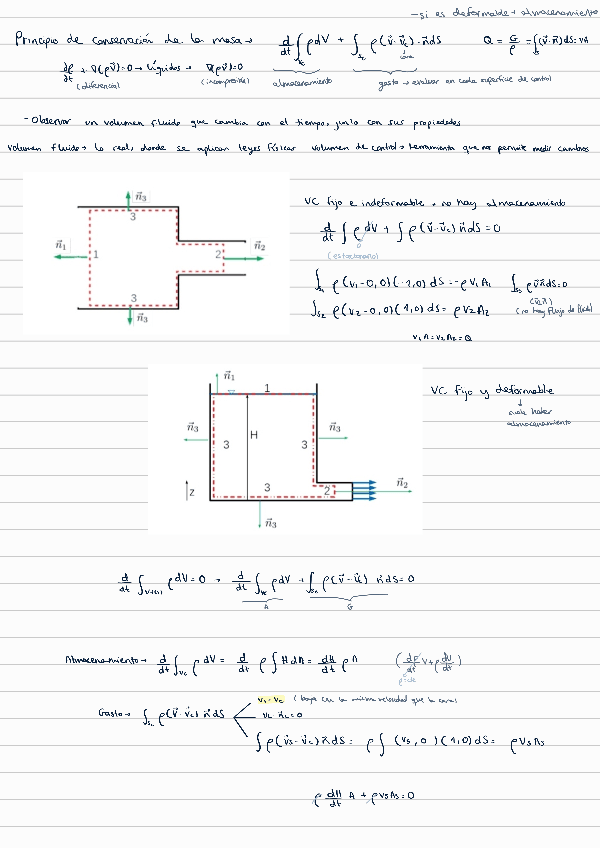 - si es deformable → almacenamiento
Principio de conservación de la masa → d/dt ∫_Vc ρdV + ∫_Sc ρ(v⃗-v⃗c)·n⃗dS Q = G/ρ = ∫(v⃗·n⃗)dS = VA
almacenamiento gasto → evaluar en cada superficie de control
dρ/dt + ∇(ρv⃗)=0 → líquidos → ∇(ρv⃗)=0
(diferencial) (incompresible)
- Observar un volumen fluido que cambia con el tiempo, junto con sus propiedades
Volumen fluido → lo real, donde se aplican leyes físicas volumen de control → herramienta que nos permite medir cambios
VC fijo e indeformable → no hay almacenamiento
d/dt ∫ ρdV + ∫ρ(v⃗-v⃗c)n⃗dS=0
(estacionario)
∫_S1 ρ(v1-0,0)(-1,0)dS = -ρV1A1 ∫_S3 ρv⃗n⃗dS=0
∫_S2 ρ(v2-0,0)(1,0)dS = ρV2A2 (no hay flujo de fluido)
V1A=V2A2=Q
n⃗3
3
n⃗1
1
2
n⃗2
3
n⃗3
VC fijo y deformable
almacenamiento
n⃗1
1
n⃗3
3
H
3
n⃗3
z
3
2
n⃗2
n⃗3
d/dt ∫_Vf(t) ρdV=0 → d/dt ∫_Vc ρdV + ∫_Sc ρ(v⃗-v⃗c) n⃗dS=0
A G
Almacenamiento → d/dt ∫_Vc ρdV = d/dt ρ∫HdA = dH/dt ρA (dρ/dt V+ρ dV/dt)
ρ=cte
Gasto → ∫_Sc ρ(v⃗-v⃗c)n⃗dS
(baja con la misma velocidad que la cara)
∫ρ(v⃗s-v⃗c)n⃗dS = ρ∫(vs,0)(1,0)dS = ρVsAs
ρ dH/dt A + ρVsAs=0